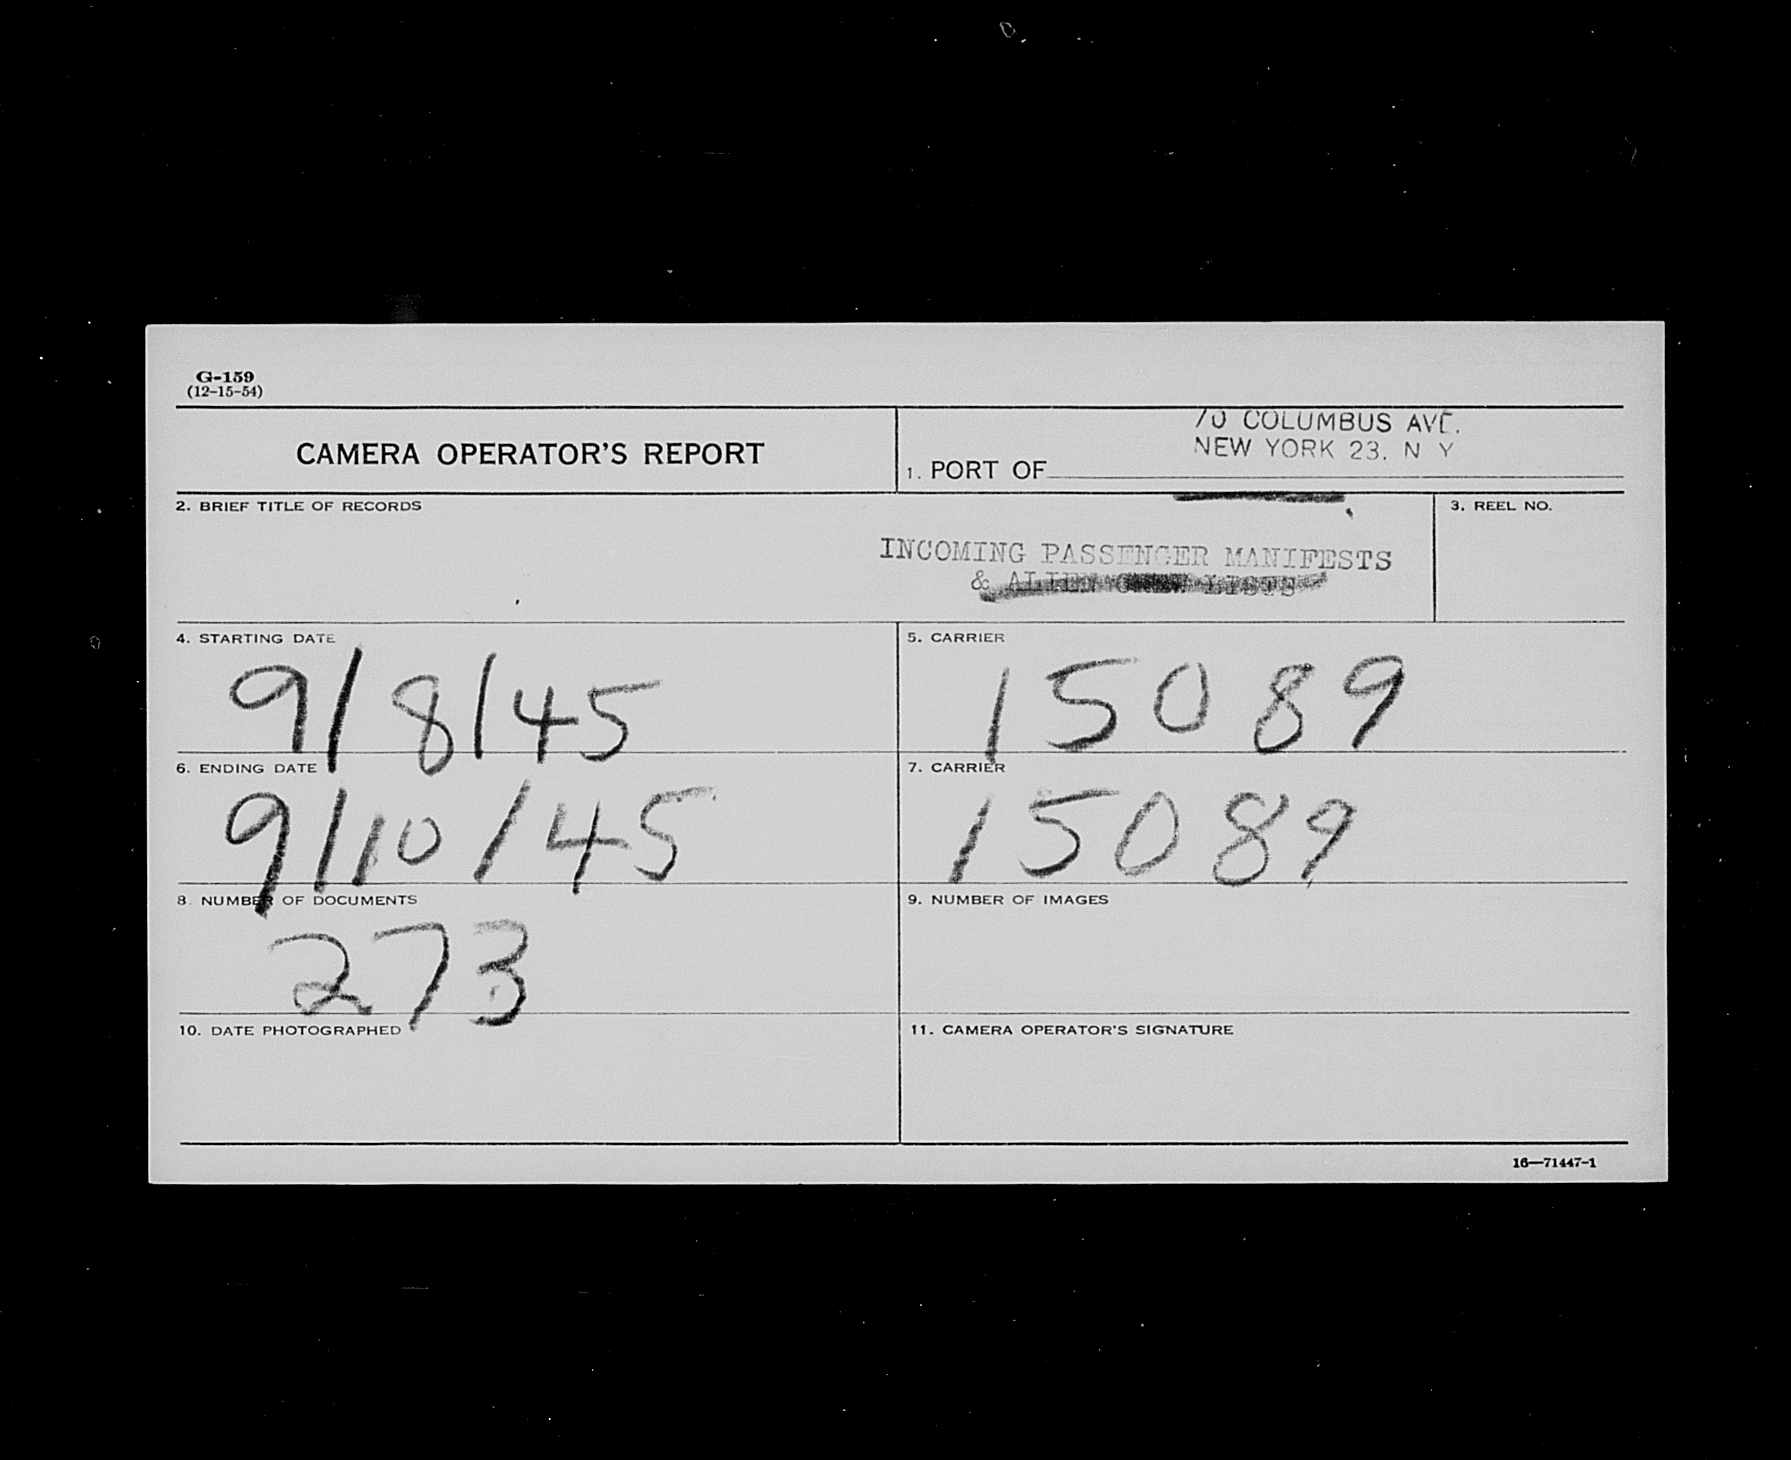 G-159
(12-15-54)
CAMERA OPERATOR'S REPORT
70 COLUMBUS AVE.
NEW YORK 23. N Y
1. PORT OF
2. BRIEF TITLE OF RECORDS
3. REEL NO.
INCOMING PASSENGER MANIFESTS
& ALIEN CREW LISTS
4. STARTING DATE
9/8/45
5. CARRIER
15089
6. ENDING DATE
9/10/45
7. CARRIER
15089
8. NUMBER OF DOCUMENTS
273
9. NUMBER OF IMAGES
10. DATE PHOTOGRAPHED
11. CAMERA OPERATOR'S SIGNATURE
16—71447-1